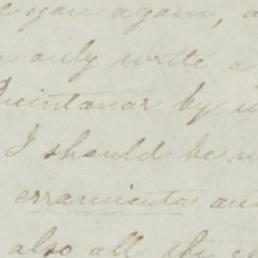 you again, a
only write a
Quintanar by
I should be
erramienta an
also all the